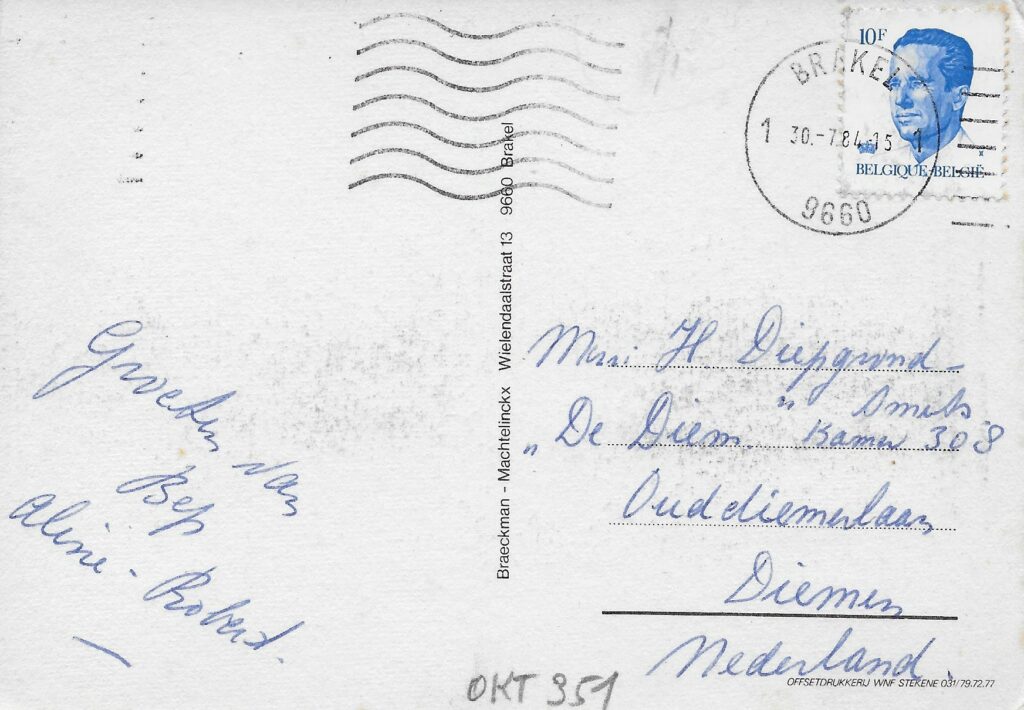 10F
BELGIQUE-BELGIË
BRAKEL
1 30.-7.84-15 1
9660
Braeckman - Machtelinckx Wielendaalstraat 13 9660 Brakel
Groeten van
Bep
Aline - Robert.
H Diepgrond-
Smits
"De Diem" Kamer 308
Ouddiemerlaan
Diemen
Nederland.
OFFSETDRUKKERIJ WNF STEKENE 031/79.72.77
OKT 351